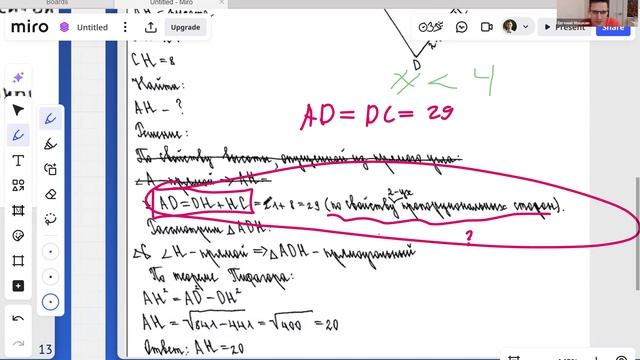 Boards
Untitled - Miro
miro
Untitled
Upgrade
Present
Share
CH = 8
Найти:
AH - ?
Решение:
По свойству высоты, опущенной из прямого угла:
D
x < 4
AD = DC = 29
AD = DH + HC = 21 + 8 = 29 (по свойству 2-ух пропорциональных сторон).
?
Рассмотрим △ADH:
∠H - прямой ⇒ △ADH - прямоугольный
По теореме Пифагора:
AH² = AD² - DH²
AH = √841 - 441 = √400 = 20
Ответ: AH = 20
13